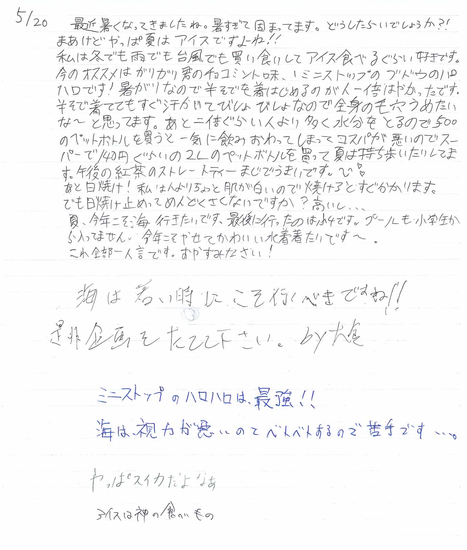 5/20
最近暑くなってきましたね。暑すぎて困ってます。どうしたらいいでしょうか?!
まあけどやっぱ夏はアイスですよね!!
私は冬でも雨でも台風でも買い食いしてアイス食べるぐらい好きです。
今のオススメはガリガリ君のチョコミント味、ミニストップのブドウのハロ
ハロです!暑がりなので半そでを着はじめるのが人一倍はやかったです。
半そで着ててもすぐ汗がでてびしょびしょなので全身の毛穴うめたい
な〜と思ってます。あと二倍ぐらい人より多く水分をとるので500
のペットボトルを買うと一気に飲みおわってしまってコスパが悪いのでスー
パーで140円ぐらいの2Lのペットボトルを買って夏は持ち歩いたりしてま
す。午後の紅茶のストレートティーまじでうまいです。
あと日焼け!私は人よりちょっと肌が白いので焼けるとすぐわかります。
でも日焼け止めってめんどくさくないですか?高いし...
夏、今年こそ海行きたいです、最後に行ったのは小4です。プールも小学生か
ら入ってません。今年こそやせてかわいい水着着たいです〜。
これ全部一人言です。おやすみなさい!
海は若い時にこそ行くべきですね!!
③
是非企画をたてて下さい。by
ミニストップのハロハロは、最強!!
海は、視力が悪いのとベトベトするので苦手です...。
やっぱスイカだよなぁ
アイスは神の食べもの